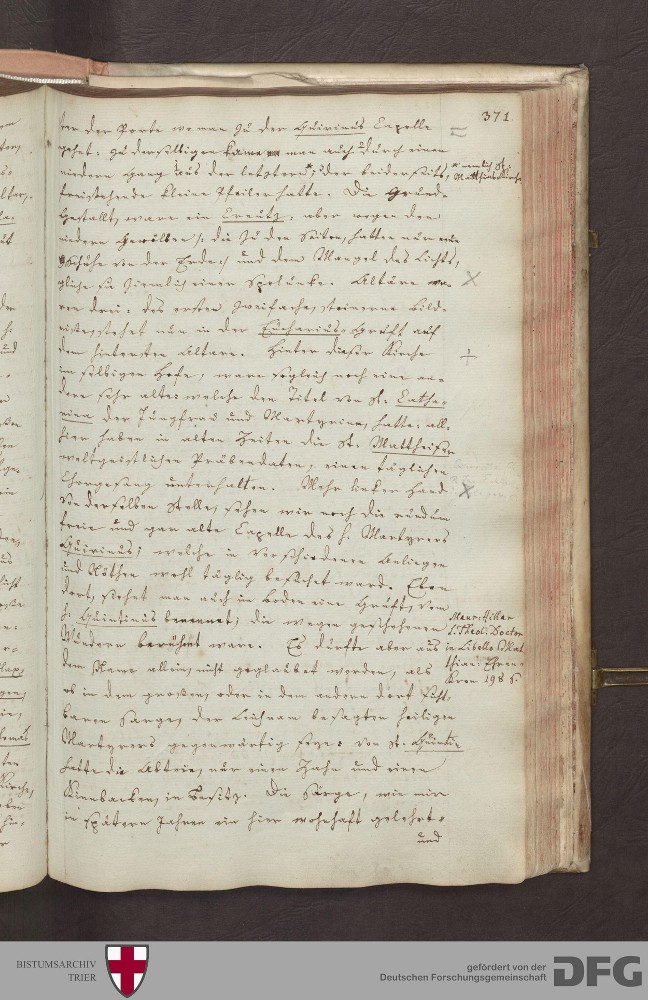 371
ter der Porte wo man zu der Quirinus Capelle
gehet: zu derselbigen kame man auch durch einen
niedern gang aus der letztern,* der beiderseits,
* nemlich St. Matthiaskirche
freistehende kleine Pfeiler hatte. Die Grund-
gestallt, ware ein Creutz: aber wegen den
niedern Gewölben /: die zu den Seiten, hatten nur
Schuhe von der Erde :/ und dem Mangel des Lichts,
gliche sie ziemlich einer Spelunke. Altäre wa-
ren drei: des ersten zweifache, steinerne Bild-
nisse, stehet nun in der Eucharius-Gruft auf
dem hintersten Altare. Hinter dieser Kirche
im selbigen Hofe, ware sogleich noch eine an-
dere sehr alte: welche den Titel von St. Catha-
rina der Jungfrau und Martyrinn, hatte: all-
hier haben in alten Zeiten die St. Mattheiser
weltgeistlichen Präbendaten, einen täglichen
Chorgesang unterhalten. Mehr linker Hand
von derselben Stelle, sehen wir noch die rundum
freie und gar alte Capelle des h. Martyrers
Quirinus; welche in verschiedenen Anliegen
und Nöthen wohl täglig besuchet ward. Eben
dort, siehet man auch im Boden eine Gruft, vom
h. Quintinus benennet; die wegen geschehenen
Wundern berühmt ware. Es durfte aber aus
dem Name allein, nicht geglaubet werden, als
ob in dem großen, oder in dem andern dort sicht-
baren Sarge, der Leichnam besagten heiligen
Martyrers gegenwärtig seye: von St. Quintin
hatte die Abteie, nur einen Zahn und einen
Kinnbacken, in Besitz. Die Särge, wie mir
in spätern Jahren ein hier wohnhaft gelehrt-
und
Maur: Hillar
S. Theol. Doctor
in Libello S. Mat
thian: Ehren-
Kron 198 S.
BISTUMSARCHIV
TRIER
gefördert von der
Deutschen Forschungsgemeinschaft
DFG